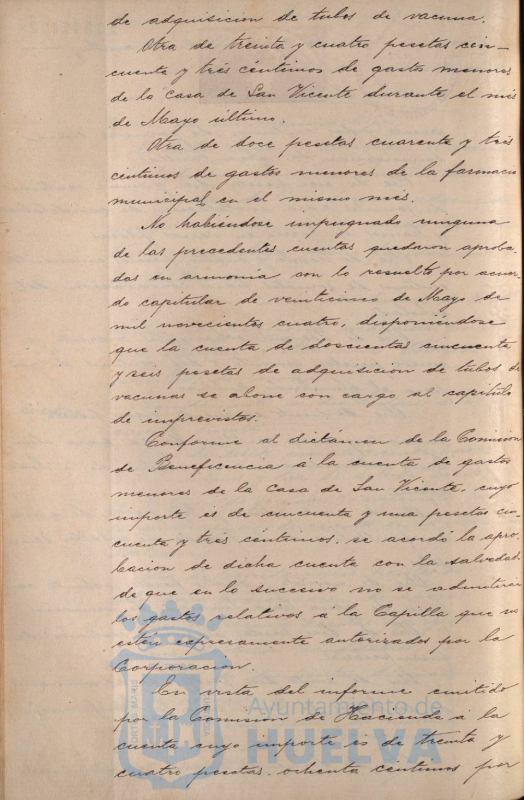 de adquisicion de tubos de vacuna.
Otra de treinta y cuatro pesetas cin-
cuenta y trés céntimos de gastos menores
de la Casa de San Vicente durante el més
de Mayo último.
Otra de doce pesetas cuarenta y trés
céntimos de gastos menores de la farmacia
municipal en el mismo més.
No habiéndose impugnado ninguna
de las precedentes cuentas quedaron aproba-
das en armonia con lo resuelto por acuer-
do capitular de veinticinco de Mayo de
mil novecientos cuatro, disponiéndose
que la cuenta de doscientas cincuenta
y seis pesetas de adquisicion de tubos de
vacunas se abone con cargo al capítulo
de imprevistos.
Conforme al dictámen de la Comision
de Beneficencia á la cuenta de gastos
menores de la Casa de San Vicente, cuyo
importe és de cincuenta y una pesetas cin-
cuenta y trés céntimos, se acordó la apro-
bacion de dicha cuenta con la salvedad
de que en lo sucesivo no se admitirán
los gastos relativos á la Capilla que no
estén expresamente autorizados por la
Corporacion.
En vista del informe emitido
por la Comision de Hacienda á la
cuenta cuyo importe es de treinta y
cuatro pesetas, ochenta céntimos por
Ayuntamiento de
HUELVA